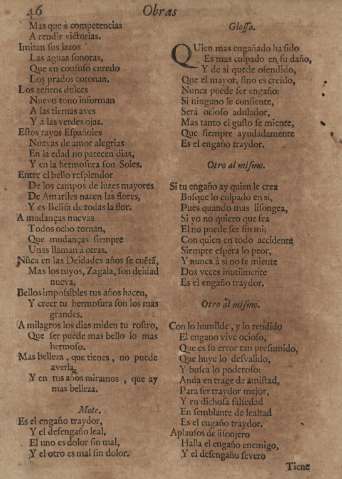 46
Obras
Mas que à competencias
A rendir victorias.
Imitan sus lazos
Las aguas sonoras,
Que en confuso enredo
Los prados coronan.
Los zefiros dulces
Nuevo tono informan
A las tiernas aves
Y a las verdes ojas.
Estos rayos Españoles
Nuevas de amor alegrias
En la edad no parecen dias,
Y en la hermosura son Soles.
Entre el bello resplendor
De los campos de luzes mayores
De Amariles nacen las flores,
Y es Belisa de todas la flor.
A mudanças nuevas
Todos ocho toman,
Que mudanças siempre
Unas llaman à otras.
Nũca en las Deidades años se cuẽtã,
Mas los tuyos, Zagala, son deidad
nueva,
Bellos impossibles tus años hacen,
Y creer tu hermosura son los mas
grandes.
A milagros los dias miden tu rostro,
Que ser puede mas bello lo mas
hermoso.
Mas belleza, que tienes, no puede
averla,
Y en tus años miramos, que ay
mas belleza.
Mote.
Es el engaño traydor,
Y el desengaño leal,
El uno es dolor sin mal,
Y el otro es mal sin dolor.
Glossa.
QUien mas engañado ha sido
Es mas culpado en su daño,
Y de si quede ofendido,
Que el mayor, sino es creido,
Nunca puede ser engaño:
Si ninguno le consiente,
Será ocioso adulador,
Mas tanto el gusto se miente,
Que siempre ayudadamente
Es el engaño traydor.
Otro al mismo.
Si tu engaño ay quien le crea
Busque lo culpado en si,
Pues quando mas lisongea,
Si yo no quiero que sea
El no puede ser sin mi:
Con quien en todo accidente
Siempre espera lo peor,
Y nunca à si no se miente
Dos veces inutilmente
Es el engaño traydor.
Otro al mismo.
Con lo humilde, y lo rendido
El engaño vive ocioso,
Que es su error tan presumido,
Que huye lo desvalido,
Y busca lo poderoso:
Anda en trage de amistad,
Para ser traydor mejor,
Y en dichosa falsedad
En semblante de lealtad
Es el engaño traydor.
Aplausos de lisonjero
Halla el engaño enemigo,
Y el desengaño severo
Tiene